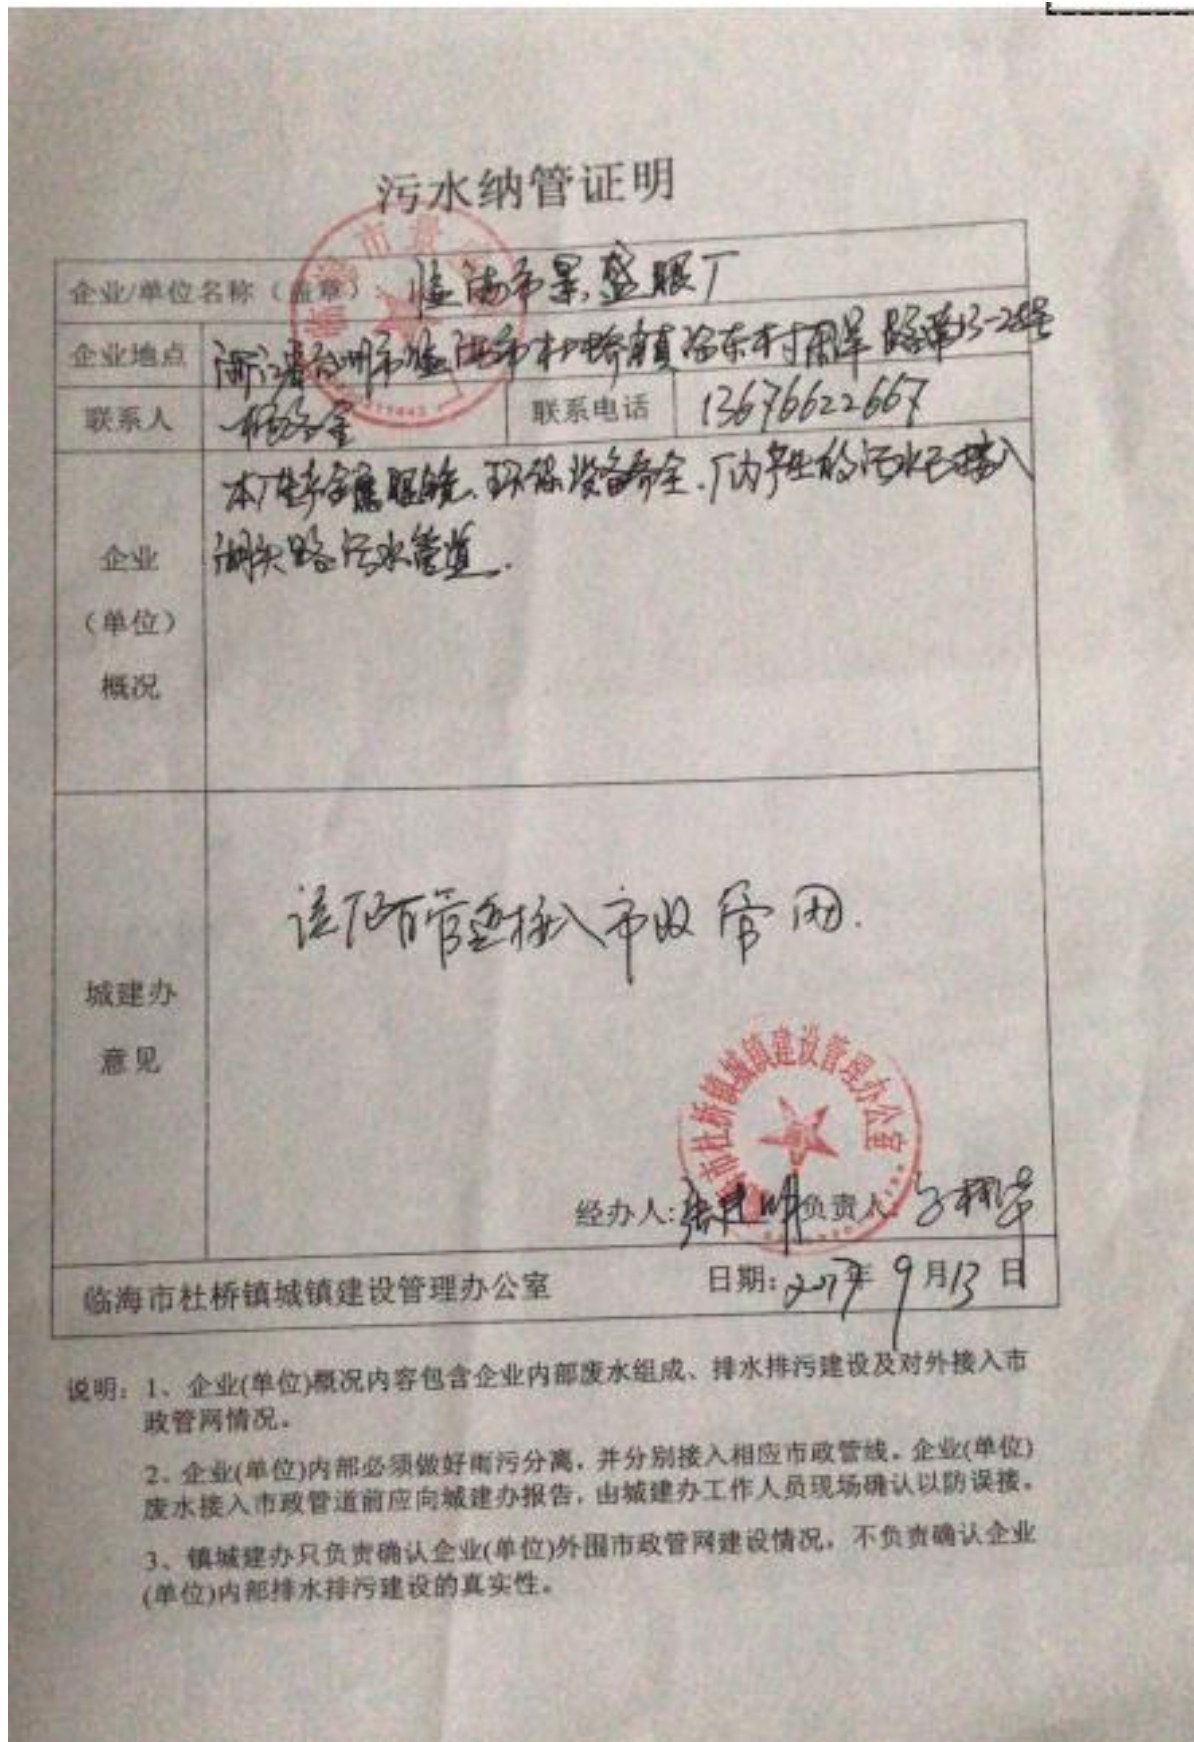 污水纳管证明
企业/单位名称（盖章）：临海市景盛眼厂
企业地点 浙江省台州市临海市杜桥镇 东村 路 13-28号
联系人 联系电话 13676622667
本厂生产金属眼镜、环保设备齐全、厂内产生的污水已接入
湖头路污水管道.
企业
（单位）
概况
该厂 有管道接入市政管网.
城建办
意见
市杜桥镇城镇建设管理办公室
经办人: 张建明 负责人:
临海市杜桥镇城镇建设管理办公室 日期: 2017年9月13日
说明：1、企业(单位)概况内容包含企业内部废水组成、排水排污建设及对外接入市
政管网情况。
2、企业(单位)内部必须做好雨污分离，并分别接入相应市政管线。企业(单位)
废水接入市政管道前应向城建办报告，由城建办工作人员现场确认以防误接。
3、镇城建办只负责确认企业(单位)外围市政管网建设情况，不负责确认企业
(单位)内部排水排污建设的真实性。